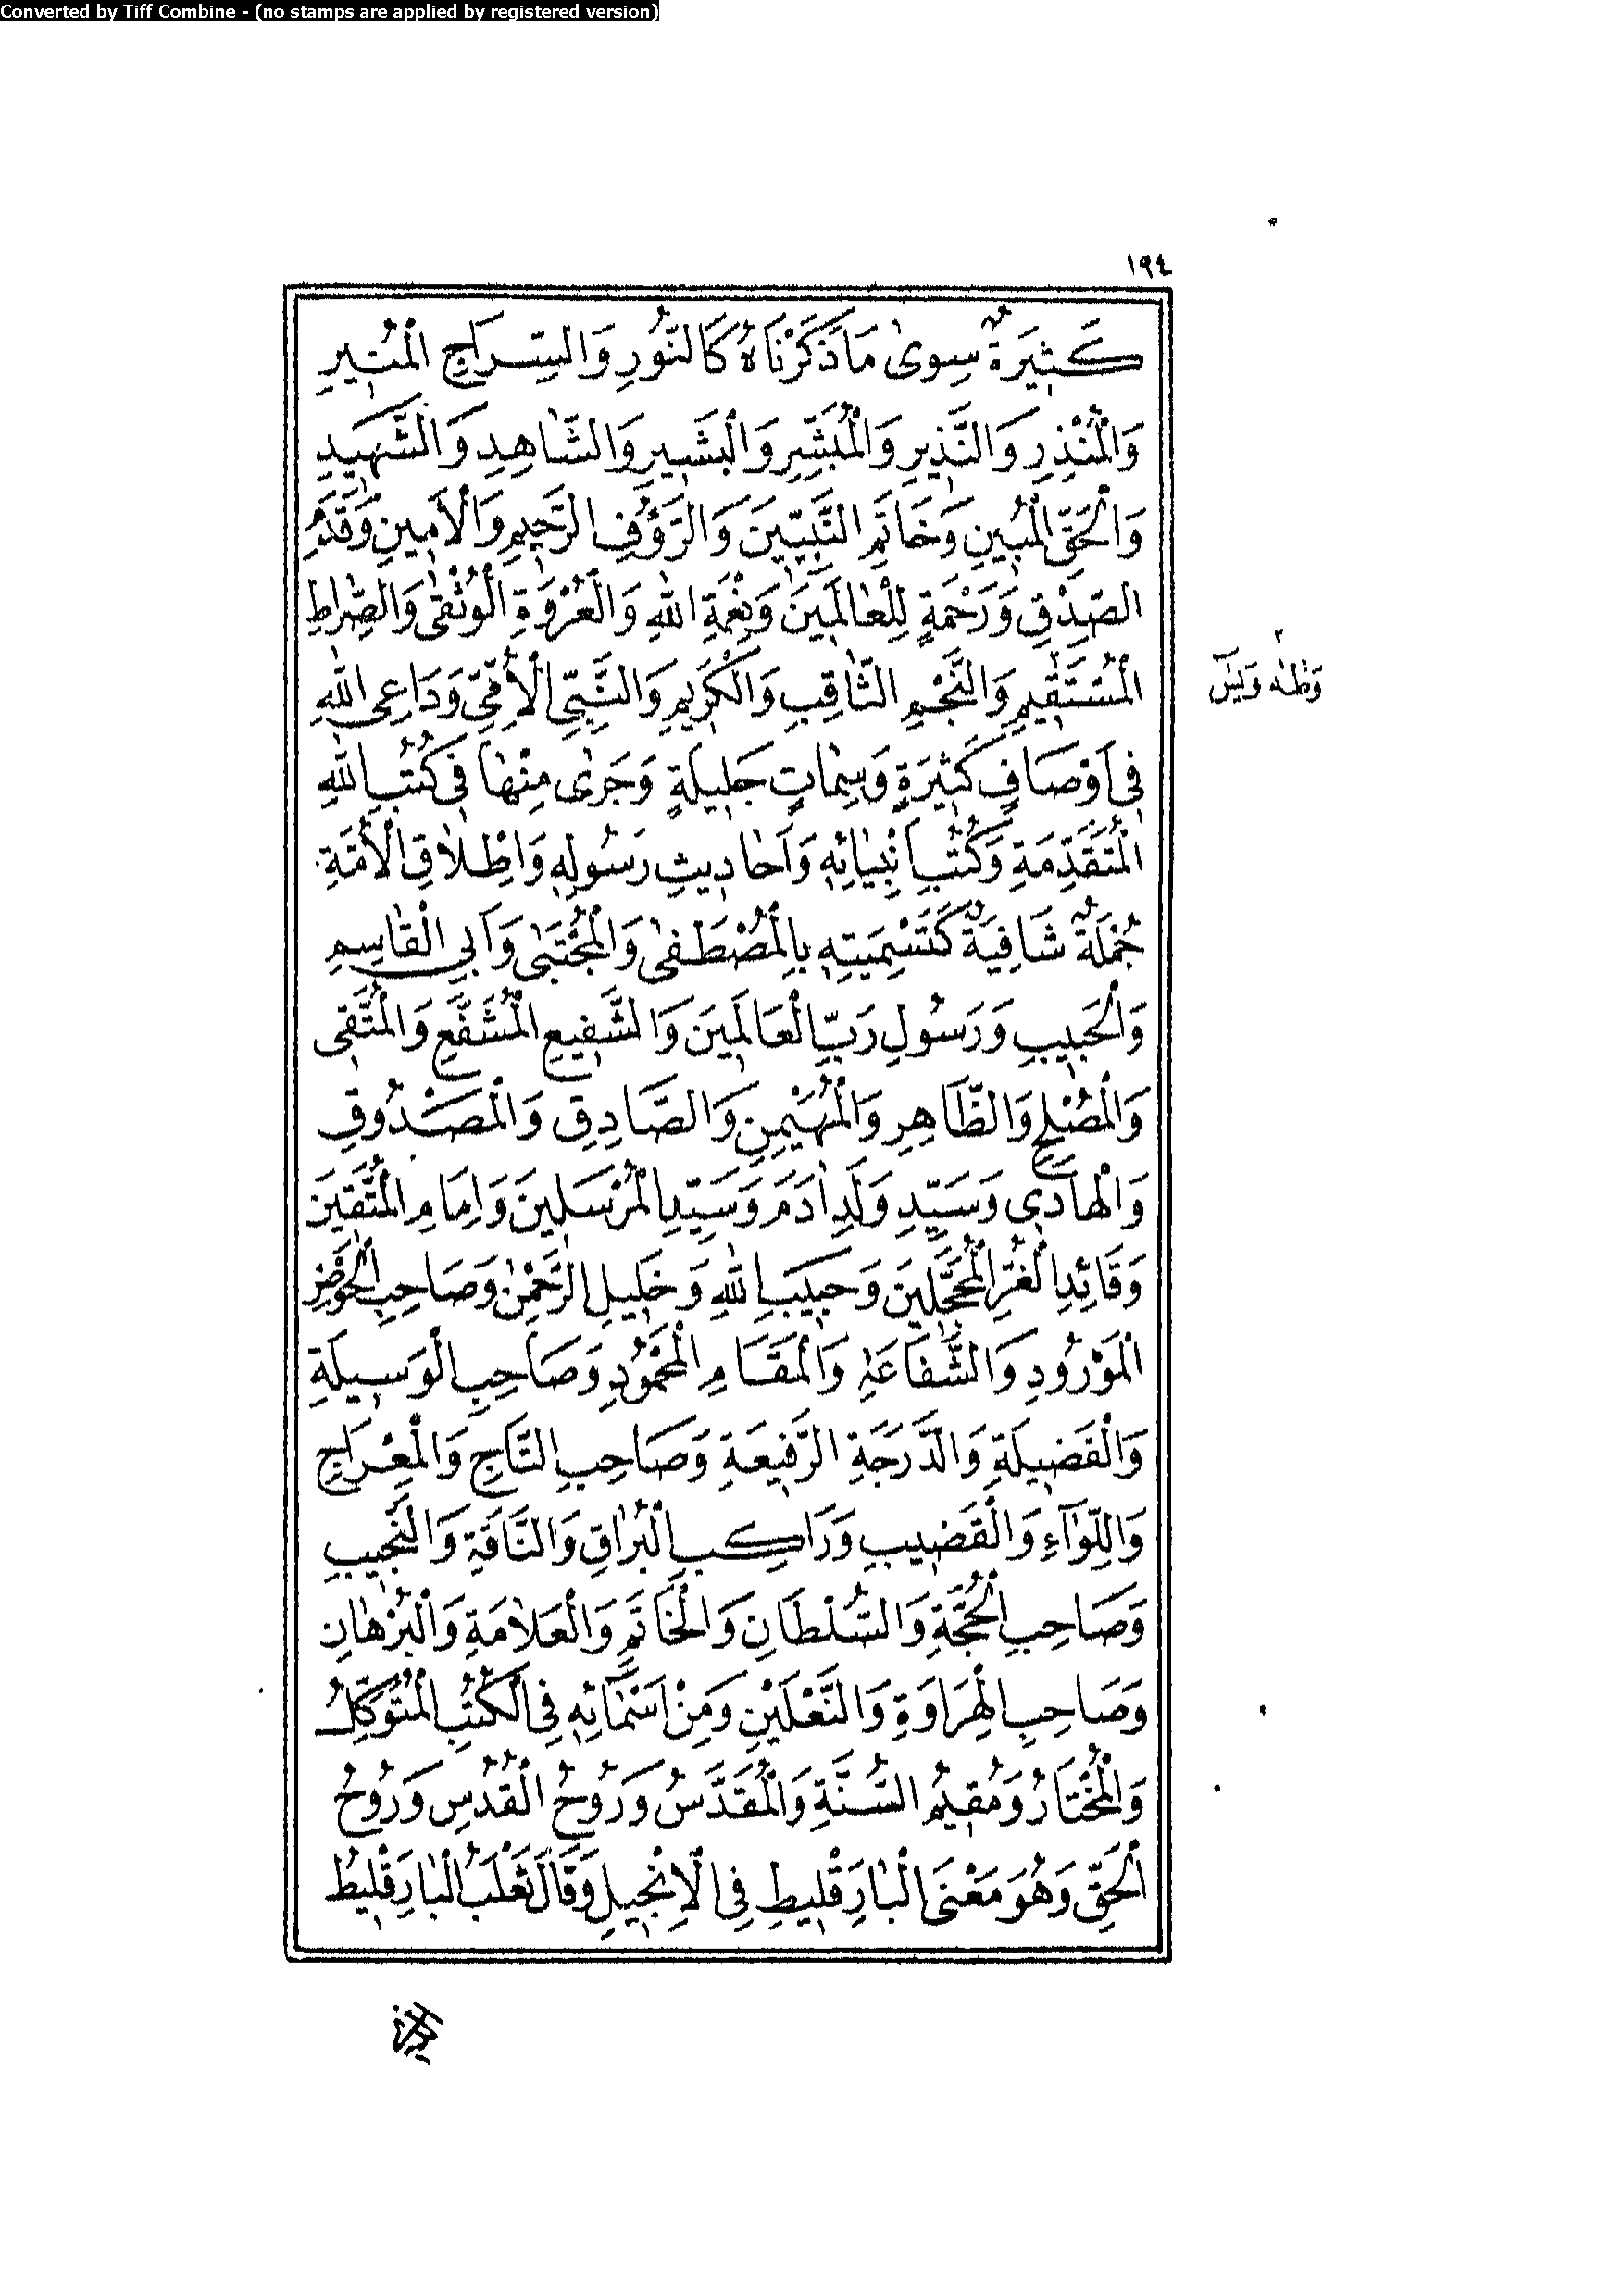 Converted by Tiff Combine - (no stamps are applied by registered version)
١٩٤
كَثِيرَةٌ سِوىٰ مَا ذَكَرْنَاهُ كَالنُّورِ وَالسِّرَاجِ الْمُنِيرِ
وَالْمُنْذِرِ وَالنَّذِيرِ وَالْمُبَشِّرِ وَالْبَشِيرِ وَالشَّاهِدِ وَالشَّهِيدِ
وَالْحَقِّ الْمُبِينِ وَخَاتَمِ النَّبِيِّينَ وَالرَّؤُفِ الرَّحِيمِ وَالْأَمِينِ وَقَدَمِ
الصِّدْقِ وَرَحْمَةٍ لِلْعٰالَمِينَ وَنِعْمَةِ اللهِ وَالْعُرْوَةِ الْوُثْقىٰ وَالصِّرٰاطِ
الْمُسْتَقِيمِ وَالنَّجْمِ الثَّاقِبِ وَالْكَرِيمِ وَالنَّبِيِّ الْأُمِّيِّ وَدَاعِى اللهِ
وَطٰهٰ وَيٰسٓ
فِى اَوْصَافٍ كَثِيرَةٍ وَسِمٰاتٍ جَلِيلَةٍ وَجَرٰى مِنْهٰا فِى كُتُبِ اللهِ
الْمُتَقَدِّمَةِ وَكُتُبِ اَنْبِيٰائِهِ وَاَحٰادِيثِ رَسُولِهِ وَاِطْلاٰقِ الْأُمَّةِ
جُمْلَةٌ شَافِيَةٌ كَتَسْمِيَتِهِ بِالْمُصْطَفىٰ وَالْمُجْتَبىٰ وَاَبِى الْقٰاسِمِ
وَالْحَبِيبِ وَرَسُولِ رَبِّ الْعَالَمِينَ وَالشَّفِيعِ الْمُشَفَّعِ وَالْمُتَّقِى
وَالْمُصْلِحِ وَالظَّاهِرِ وَالْمُهَيْمِنِ وَالصَّادِقِ وَالْمَصْدُوقِ
وَالْهَادِى وَسَيِّدِ وَلَدِ اٰدَمَ وَسَيِّدِ الْمُرْسَلِينَ وَاِمَامِ الْمُتَّقِينَ
وَقَائِدِ الْغُرِّ الْمُحَجَّلِينَ وَحَبِيبِ اللهِ وَخَلِيلِ الرَّحْمٰنِ وَصَاحِبِ الْحَوْضِ
الْمَوْرُودِ وَالشَّفَاعَةِ وَالْمَقَامِ الْمَحْمُودِ وَصَاحِبِ الْوَسِيلَةِ
وَالْفَضِيلَةِ وَالدَّرَجَةِ الرَّفِيعَةِ وَصَاحِبِ التَّاجِ وَالْمِعْرَاجِ
وَاللِّوٰآءِ وَالْقَضِيبِ وَرَاكِبِ الْبُرٰاقِ وَالنَّاقَةِ وَالنَّجِيبِ
وَصَاحِبِ الْحُجَّةِ وَالسُّلْطَانِ وَالْخَاتَمِ وَالْعَلاٰمَةِ وَالْبُرْهٰانِ
وَصَاحِبِ الْهِرَاوَةِ وَالنَّعْلَيْنِ وَمِنْ اَسْمٰآئِهِ فِى الْكُتُبِ الْمُتَوَكِّلُ
وَالْمُخْتَارُ وَمُقِيمُ السُّنَّةِ وَالْمُقَدَّسُ وَرُوحُ الْقُدُسِ وَرُوحُ
الْحَقِّ وَهُوَ مَعْنَى الْبٰارِقْلِيطِ فِى الْاِنْجِيلِ وَقَالَ ثَعْلَبُ الْبٰارِقْلِيطُ